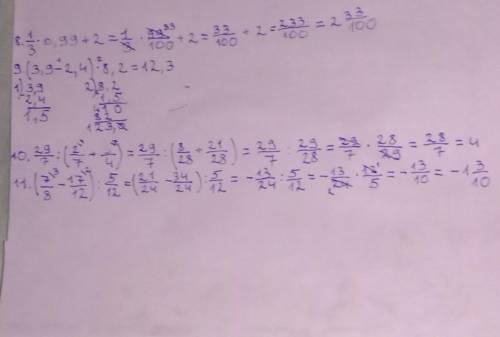 8. 1/3 · 0,99 + 2 = 1/3 · 99/100 33 + 2 = 33/100 + 2 = 233/100 = 2 33/100
9. (3,9 - 2,4) · 8,2 = 12,3
1) 3,9 2) 8,2
- 2,4 1,5
1,5 410
82
12 3,0
10. 29/7 : (2/7 + 3/4) = 29/7 : (8/28 + 21/28) = 29/7 : 29/28 = 29/7 · 28/29 = 28/7 = 4
11. (7/8 - 17/12) : 5/12 = (21/24 - 34/24) : 5/12 = - 13/24 : 5/12 = - 13/24 · 12/5 = - 13/10 = - 1 3/10